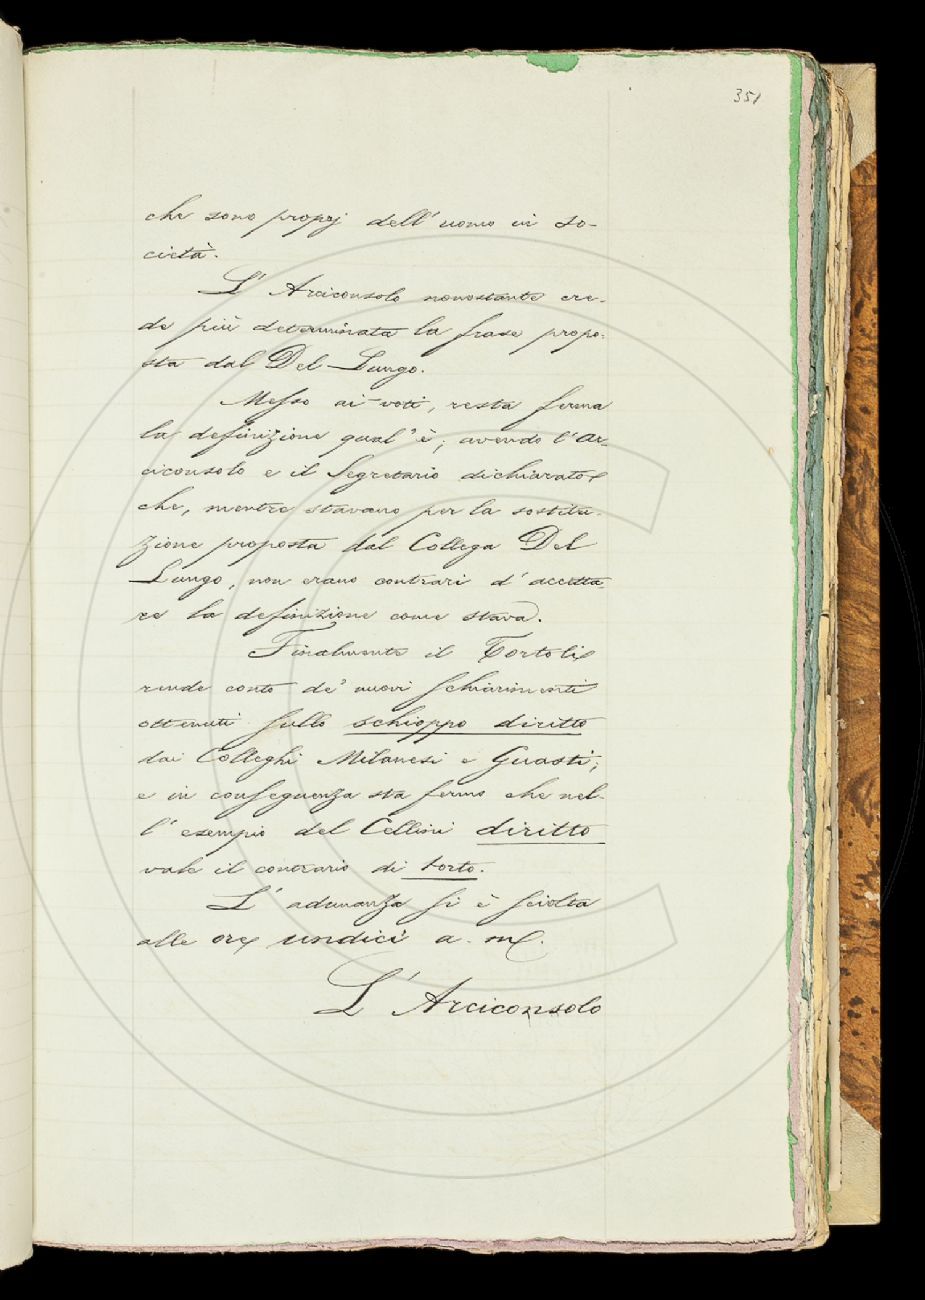 351
che sono proprj dell'uomo in so-
cietà.
L'Arciconsolo nonostante cre-
de più determinata la frase propo-
sta dal Del-Lungo.
Messo ai voti, resta ferma
la definizione qual'è; avendo l'Ar-
ciconsolo e il Segretario dichiarato
che, mentre stavano per la sostitu-
zione proposta dal Collega Del
Lungo, non erano contrari d'accetta-
re la definizione come stava.
Finalmente il Tortoli
rende conto de' nuovi schiarimenti
ottenuti sullo schioppo diritto
dai Colleghi Milanesi e Guasti;
e in conseguenza sta fermo che nel-
l'esempio del Cellini diritto
vale il contrario di torto.
L'adunanza si è sciolta
alle ore undici a. m.
L'Arciconsolo